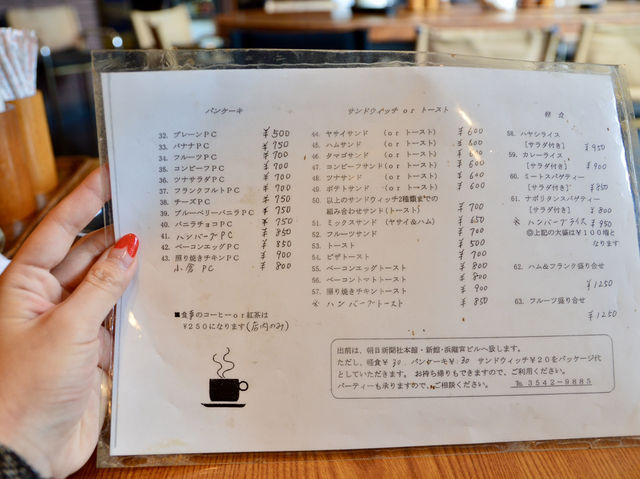 パンケーキ
32. プレーンPC ¥500
33. バナナPC ¥750
34. フルーツPC ¥700
35. コンビーフPC ¥700
36. ツナサラダPC ¥700
37. フランクフルトPC ¥700
38. チーズPC ¥750
39. ブルーベリーバニラPC ¥750
40. バニラチョコPC ¥750
41. ハンバーグPC ¥850
42. ベーコンエッグPC ¥850
43. 照り焼きチキンPC ¥900
小倉 PC ¥800
■食事のコーヒーor紅茶は
¥250になります(店内のみ)
サンドウィッチ or トースト
44. ヤサイサンド (or トースト) ¥600
45. ハムサンド (or トースト) ¥600
46. タマゴサンド (or トースト) ¥600
47. コンビーフサンド(or トースト) ¥600
48. ツナサンド (or トースト) ¥600
49. ポテトサンド (or トースト) ¥600
50. 以上のサンドウィッチ2種類までの
組み合せサンド(トースト) ¥700
51. ミックスサンド (ヤサイ&ハム) ¥650
52. フルーツサンド ¥700
53. トースト ¥500
54. ピザトースト ¥700
55. ベーコンエッグトースト ¥800
56. ベーコントマトトースト ¥800
57. 照り焼きチキントースト ¥900
※ ハンバーグトースト ¥850
軽食
58. ハヤシライス
[サラダ付き] ¥950
59. カレーライス
[サラダ付き] ¥900
60. ミートスパゲティー
[サラダ付き] ¥850
61. ナポリタンスパゲティー
[サラダ付き] ¥800
※ ハンバーグライス ¥950
◎上記の大盛は¥100増と
なります
62. ハム&フランク盛り合せ
¥1250
63. フルーツ盛り合せ
¥1250
出前は、朝日新聞社本館・新館・浜離宮ビルへ致します。
ただし、軽食¥30 パンケーキ¥30 サンドウィッチ¥20をパッケージ代
としていただきます。お持ち帰りもできますので、ご利用ください。
パーティーも承りますので、ご相談ください。 ℡ 3542-9885